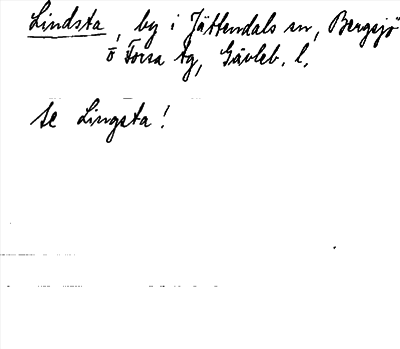 Lindsta, by i Jättendals sn, Bergsjö
o Forsa tg, Gävleb. l.
se Lingsta!